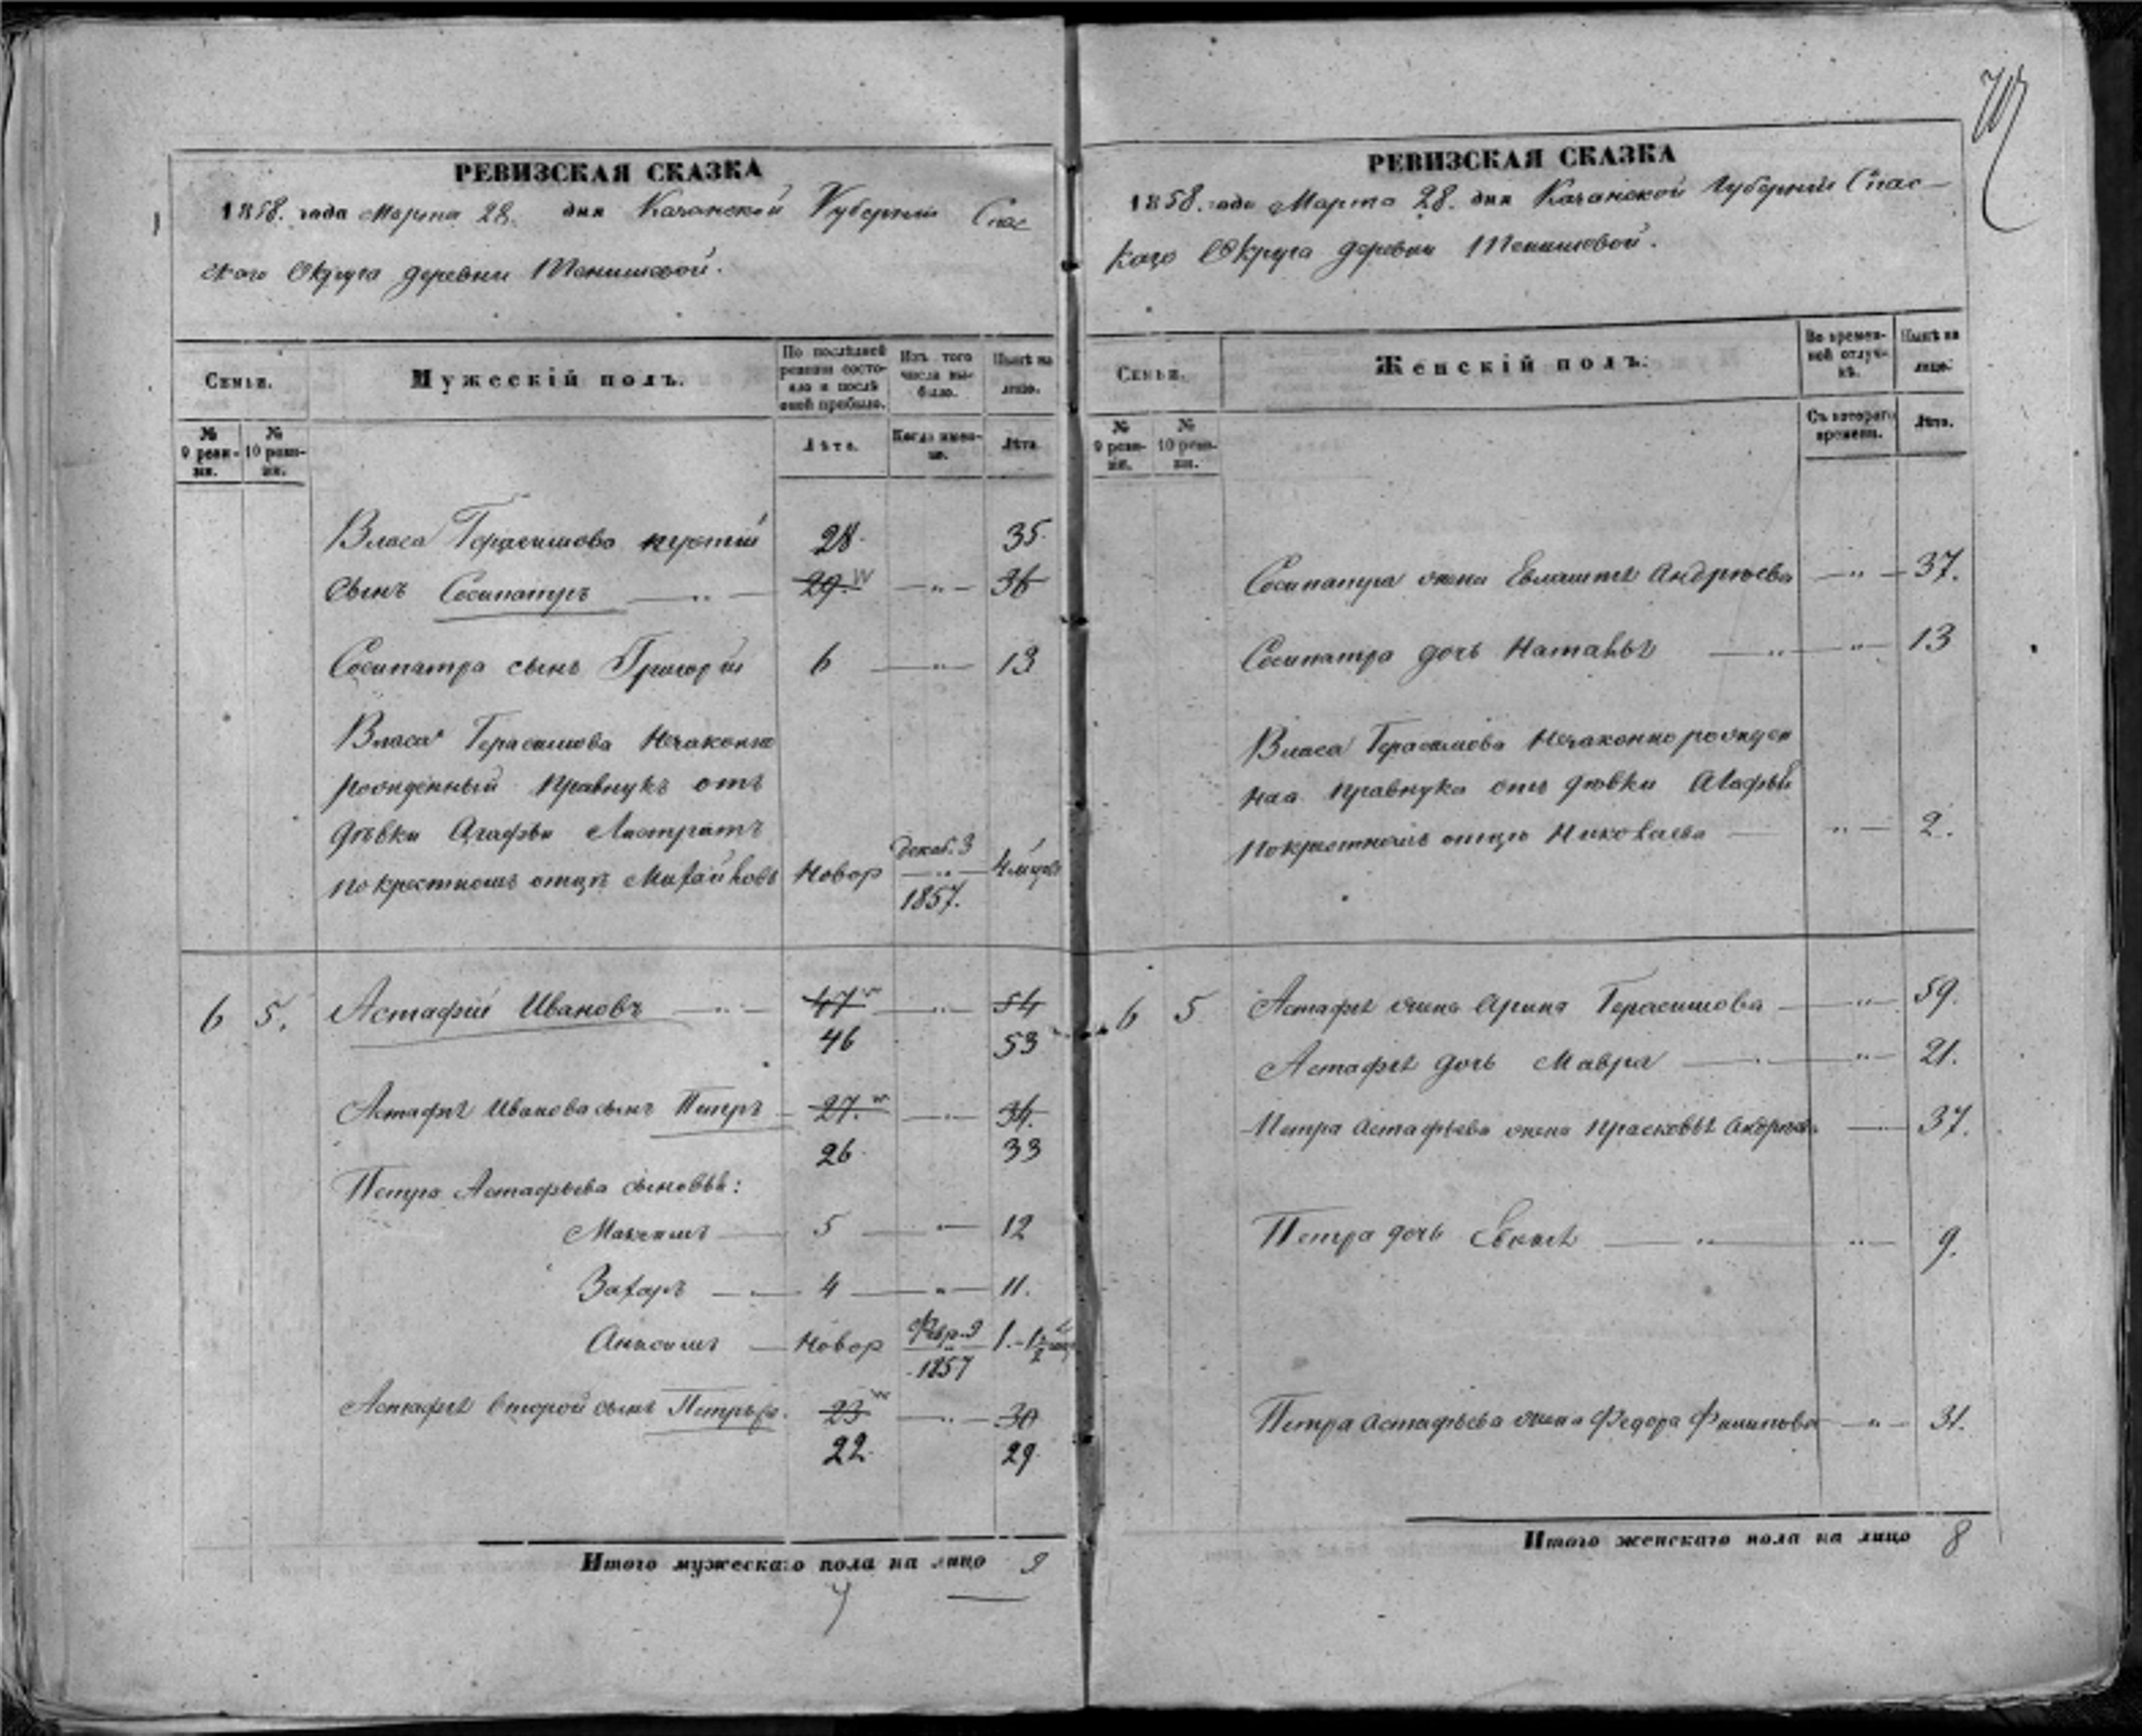 РЕВИЗСКАЯ СКАЗКА
1858. года Марта 28. дня Казанской Губерніи Спас
скаго Округа деревни
Семьи.
Мужескій полъ.
По послѣдней ревизіи состояло и послѣ оной прибыло.
Изъ того числа выбыло.
Нынѣ на лицо.
№ 9 ревизіи.
№ 10 ревизіи.
Лѣта.
Когда именно.
Лѣта.
Власа Герасимова третій 28. 35.
сынъ Сосипатръ — " — 29. — " — 36
Сосипатра сынъ Григорій 6 — " — 13
Власа Герасимова незаконно
рожденный правнукъ отъ
дѣвки Агафьи Листратъ
по крестномъ отцѣ Михайловъ Новор декаб. 3 1857. 4 мѣся
6 5. Астафій Ивановъ — " — 47 — " — 54
46 53
Астафья Иванова сынъ Петръ 27. — " — 34.
26. 33
Петра Астафьева сыновья:
Максимъ 5 — " — 12
Захаръ 4 — " — 11.
Анисимъ Новор Февр. 9 1857 1. -
Астафья второй сынъ Петръ 23 — " — 30
22. 29.
Итого мужескаго пола на лицо 9
РЕВИЗСКАЯ СКАЗКА
1858. года Марта 28. дня Казанской Губерніи Спас-
каго Округа деревни
Семьи.
Женскій полъ.
Во временной отлучкѣ.
Нынѣ на лицо.
№ 9 ревизіи.
№ 10 ревизіи.
Съ котораго времени.
Лѣта.
Сосипатра жена Андрѣева — " — 37.
Сосипатра дочь Наталья — " — " — 13
Власа Герасимова незаконно рожден
ная правнука отъ дѣвки Агафьи
по крестномъ отцѣ Николаева — " — 2.
6 5 Астафья жена Арина Герасимова — " — 59.
Астафья дочь Мавра — " — 21.
Петра Астафьева жена Прасковья — 37.
Петра дочь — " — " — 9.
Петра Астафьева жена Федора Филипова — " — 31.
Итого женскаго пола на лицо 8